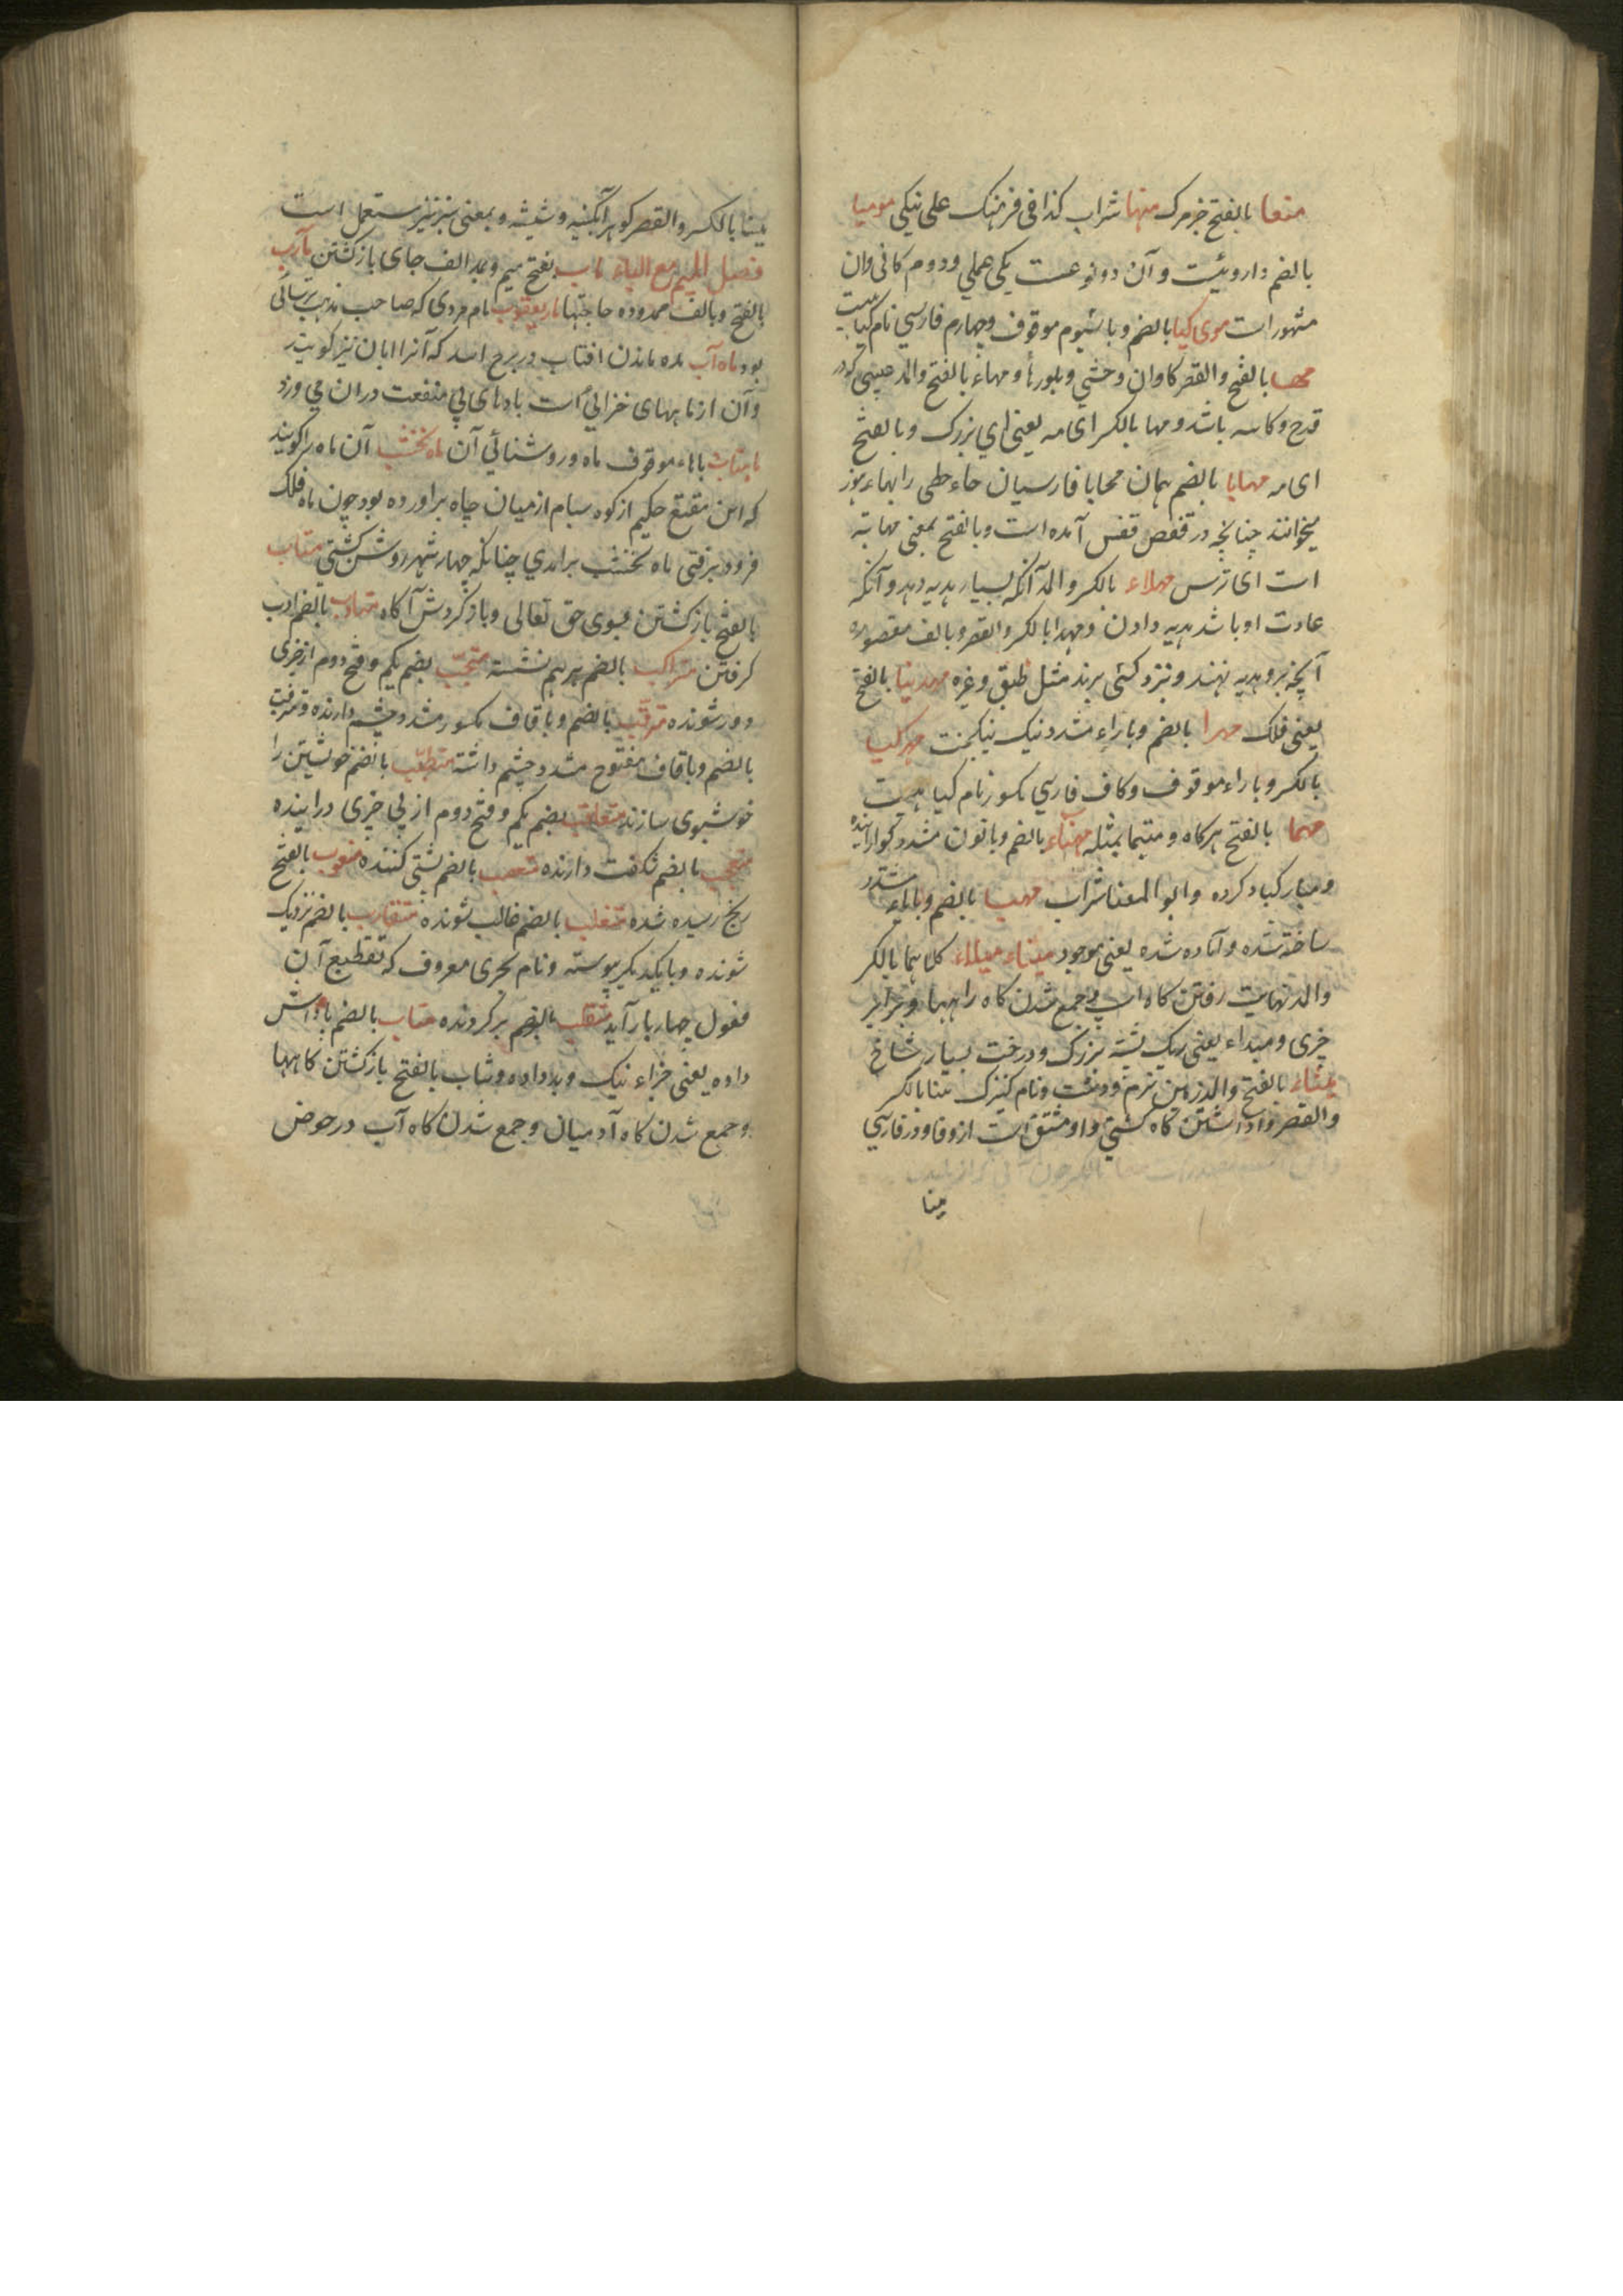 منعا بالفتح جزمرک منها شراب کذا فی فرهنک علی نیکی مومیا
بالضم داروئیست و آن دو نوعست یکی عملی و دوم کانی وان
مشهور است موی کیا بالضم و با شیوم موقوف و چهارم فارسی نام کیاهیست
مها بالفتح والقصر کاوان وحشی و بلورها و مهاء بالفتح والمد عیبی که در
قدح و کاسه باشد و مها بالکسر ای مه یعنی ای بزرک و بالفتح
ای مه مهابا بالضم همان محابا فارسیان حاء حطی را بهاء هوز
میخوانند چنانچه در قفص قفس آمده است و بالفتح بمعنی مهابة
است ای ترس مهداء بالکسر والمد آنکه بسیار هدیه دهد و آنکه
عادت او باشد هدیه دادن و مهدا بالکسر والقصر و بالف مقصوره
آنچه برو هدیه نهند و نزد کسی برند مثل طبق و غیره مهد مینا بالفتح
یعنی فلک مهرا بالضم و باراء مشدد نیک نیکپخت مهر کیا
بالکسر و باراء موقوف و کاف فارسی مکسور نام کیاهیست
مهما بالفتح هرکاه و متیما بمثله مهناء بالضم و بانون مشدد کوارانیده
و مبارکباد کرده و ابو المهنا شراب مهیا بالضم و بایاء مشدد
ساخته شده و آماده شده یعنی موجود میتاء میلاء کلاهما بالکسر
والمد نهایت رفتن کاه اسپ و جمع شدن کاه راهها و برابر
چیزی و میداء یعنی ریک پشته بزرک و درخت بسیار شاخ
میثاء بالفتح والمد زمین نرم و دشت و نام کنیزک مینا بالکسر
والقصر واداشتن کاه کشتی و او مشتق است از وفا و در فارسی
مینا
مینا بالکسر والقصر کوهر آبکینه و شیشه و بمعنی سبز نیز مستعمل است
فصل المیم مع الباء ماب بفتح میم و بمد الف جای بازکشتن مآرب
بالفتح و بالف ممدوده حاجتها مار یعقوب نام مردی که صاحب مذهب ترسائی
بود ماه آب مده ماندن افتاب در برج اسد که آنرا ابان نیز کویند
وآن از ماههای خزانی است بادهای بی منفعت دران می ورزد
ماهتاب باهاء موقوف ماه و روشنائی آن ماه نخشب آن ماه را کویند
که ابن مقنع حکیم از کوه سیام از میان چاه براورده بود چون ماه فلک
فرود رفتی ماه نخشب برامدی چنانکه چهار شهر روشن کشتی متاب
بالفتح بازکشتن بسوی حق تعالی و بازکردش آکاه متهادب بالضم ادب
کرفتن متراکب بالضم برهم نشسته متجنب بضم یکم و فتح دوم از چیزی
دور شونده مترقب بالضم و با قاف مکسور مشدد چشم دارنده و مترقب
بالضم و با قاف مفتوح مشدد چشم داشته متطیب بالضم خویشتن را
خوشبوی سازنده متعاقب بضم یکم و فتح دوم از پی چیزی دراینده
متعجب بالضم شکفت دارنده متعصب بالضم پشتی کننده متعوب بالفتح
رنج رسیده شده متغلب بالضم غالب شونده متقارب بالضم نزدیک
شونده و با یکدیکر پیوسته و نام بحری معروف که تقطیع آن
فعول چهار بار آید متقلب بالضم برکردنده مثاب بالضم پاداش
داده یعنی جزاء نیک و بد داده و مثاب بالفتح بازکشتن کاهها
و جمع شدن کاه آدمیان و جمع شدن کاه آب در حوض